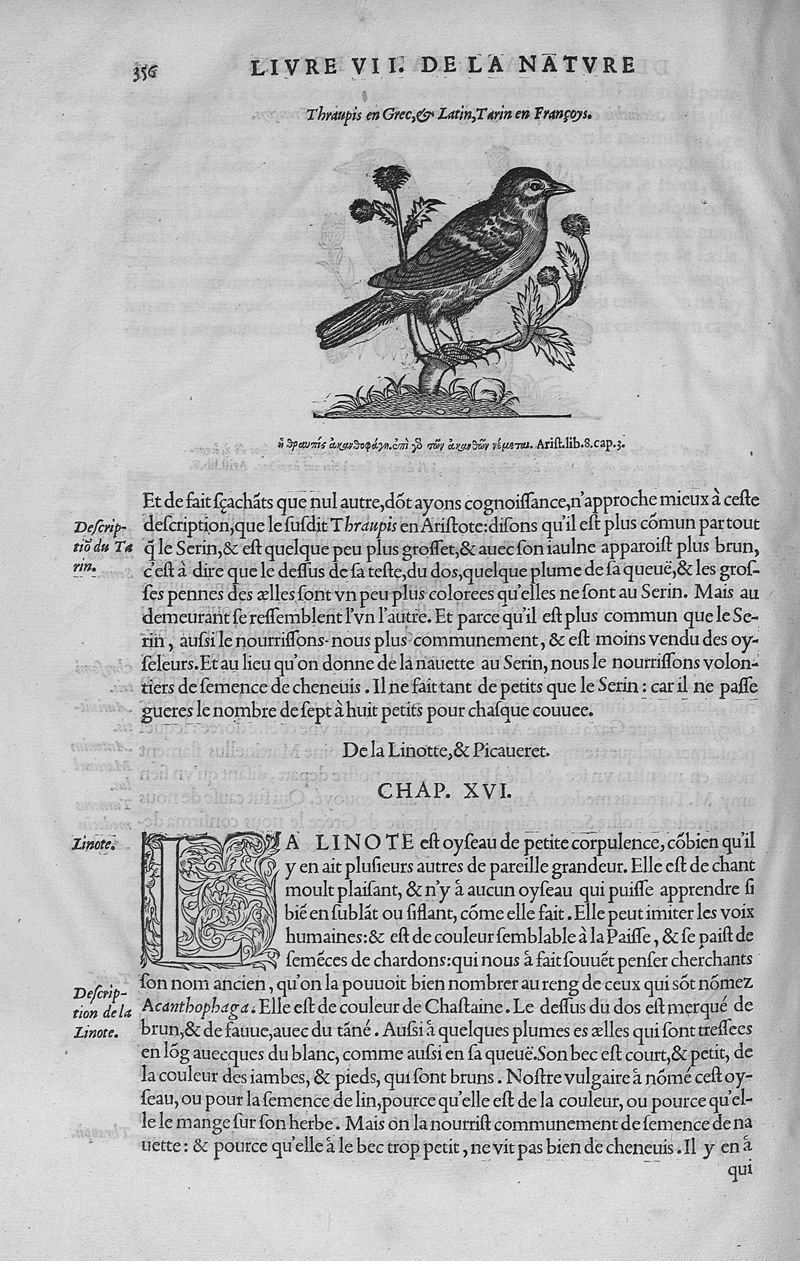 356
LIVRE VII. DE LA NATVRE
Thraupis en Grec, & Latin, Tarin en Françoys.
ἡ θραυπὶς ἀκανθοφάγη. ἐπὶ γὸ τῶν ἀκανθῶν νέμεται. Arist. lib. 8. cap. 3.
Et de fait sçachãts que nul autre, dõt ayons cognoissance, n'approche mieux à ceste
Descrip-
tiõ du Ta
rin.
description, que le susdit Thraupis en Aristote: disons qu'il est plus cõmun par tout
q̃ le Serin, & est quelque peu plus grosset, & auec son iaulne apparoist plus brun,
c'est à dire que le dessus de sa teste, du dos, quelque plume de sa queuë, & les gros-
ses pennes des ælles sont vn peu plus colorees qu'elles ne sont au Serin. Mais au
demeurant se ressemblent l'vn l'autre. Et parce qu'il est plus commun que le Se-
rin, aussi le nourrissons-nous plus communement, & est moins vendu des oy-
seleurs. Et au lieu qu'on donne de la nauette au Serin, nous le nourrissons volon-
tiers de semence de cheneuis. Il ne fait tant de petits que le Serin: car il ne passe
gueres le nombre de sept à huit petits pour chasque couuee.
De la Linotte, & Picaueret.
CHAP. XVI.
Linote.
LA LINOTE est oyseau de petite corpulence, cõbien qu'il
y en ait plusieurs autres de pareille grandeur. Elle est de chant
moult plaisant, & n'y à aucun oyseau qui puisse apprendre si
biẽ en sublãt ou siflant, cõme elle fait. Elle peut imiter les voix
humaines: & est de couleur semblable à la Paisse, & se paist de
semẽces de chardons: qui nous à fait souuẽt penser cherchants
son nom ancien, qu'on la pouuoit bien nombrer au reng de ceux qui sõt nõmez
Descrip-
tion de la
Linote.
Acanthophaga. Elle est de couleur de Chastaine. Le dessus du dos est merqué de
brun, & de fauue, auec du tãné. Aussi à quelques plumes es ælles qui sont tressees
en lõg auecques du blanc, comme aussi en sa queuë. Son bec est court, & petit, de
la couleur des iambes, & pieds, qui sont bruns. Nostre vulgaire à nõmé cest oy-
seau, ou pour la semence de lin, pource qu'elle est de la couleur, ou pource qu'el-
le le mange sur son herbe. Mais on la nourrist communement de semence de na
uette: & pource qu'elle à le bec trop petit, ne vit pas bien de cheneuis. Il y en à
qui